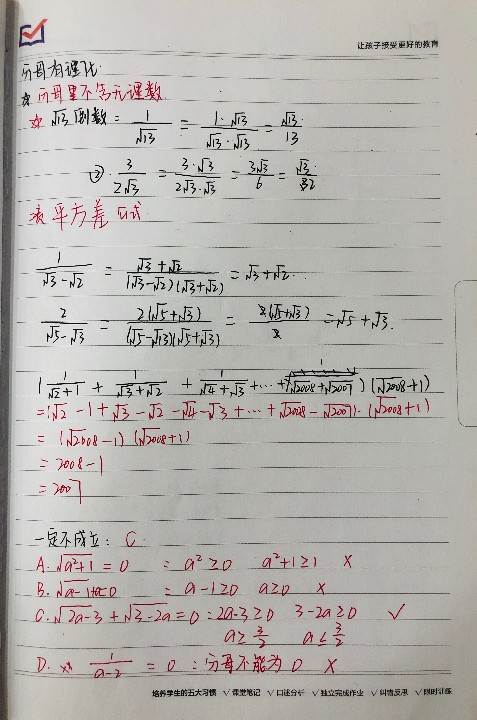 让孩子接受更好的教育
分母有理化
☆ 分母里不含无理数
☆ √13 倒数 = 1/√13 = 1·√13/√13·√13 = √13/13
② 3/2√3 = 3·√3/2√3·√3 = 3√3/6 = √3/2
平方差公式
1/√3-√2 = √3+√2/(√3-√2)(√3+√2) = √3+√2
2/√5-√3 = 2(√5+√3)/(√5-√3)(√5+√3) = 2(√5+√3)/2 = √5+√3.
(1/√2+1 + 1/√3+√2 + 1/√4+√3 + ··· + 1/√2008+√2007) (√2008+1)
= (√2-1+√3-√2-√4-√3+···+√2008-√2007)·(√2008+1)
= (√2008-1) (√2008+1)
= 2008-1
= 2007
一定不成立: C.
A. √a²+1 = 0 : a²≥0 a²+1≥1 ×
B. √a-1+a=0 : a-1≥0 a≥0 ×
C. √2a-3 + √3-2a = 0 : 2a-3≥0 3-2a≥0 √
a≥3/2 a≤3/2
D. 1/a-2 = 0 : 分母不能为0 ×
培养学生的五大习惯 √课堂笔记 √口述分析 √独立完成作业 √纠错反思 √限时训练